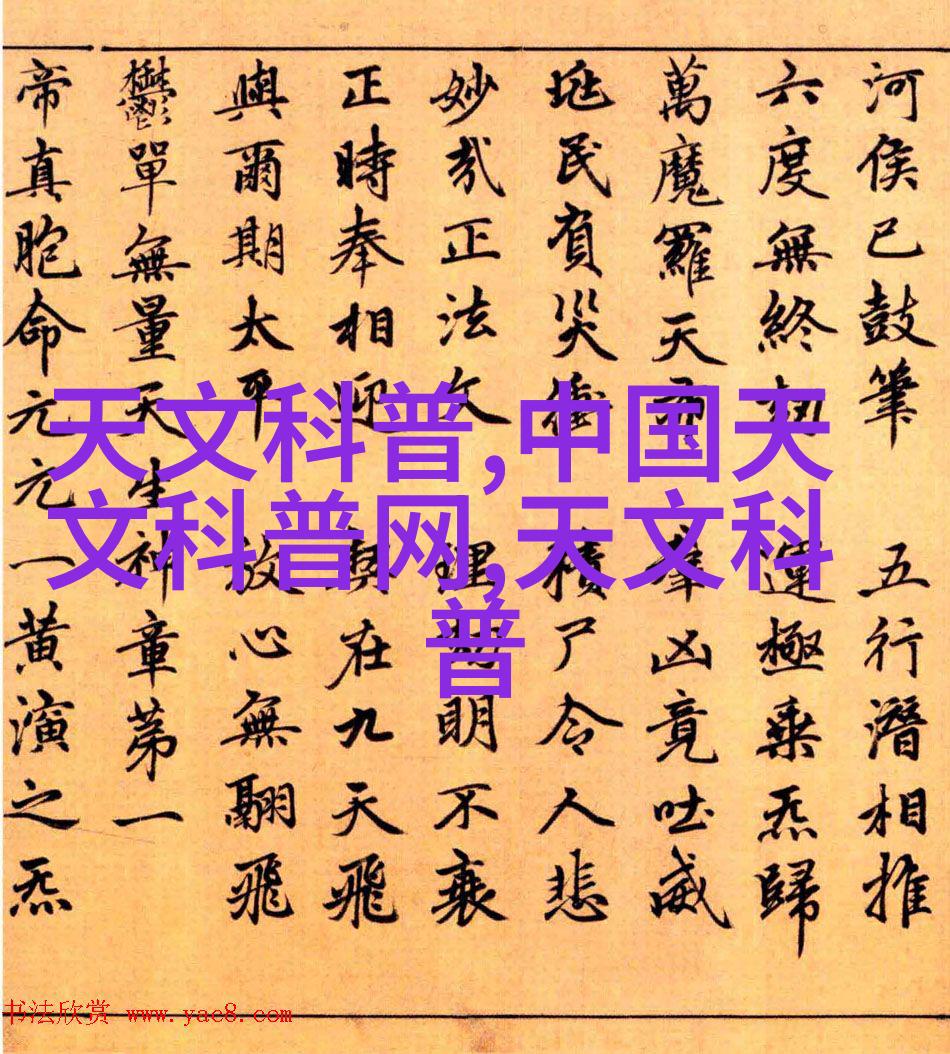 河侯已鼓筆 五行潛相推
六度無終劫 運極乗炁歸
萬魔羅天 羣凶竟吐威
民災衝 積尸令人悲
妙哉正法文 理明不衰
正時奉相迎 在九天飛
與爾期太平 放心無翮飛
鬱單無量天生神章第一
帝真胞命元元一黃演之炁
天文科普,中国天
文科普网,天文科
普
书法欣赏 www.yac8.com